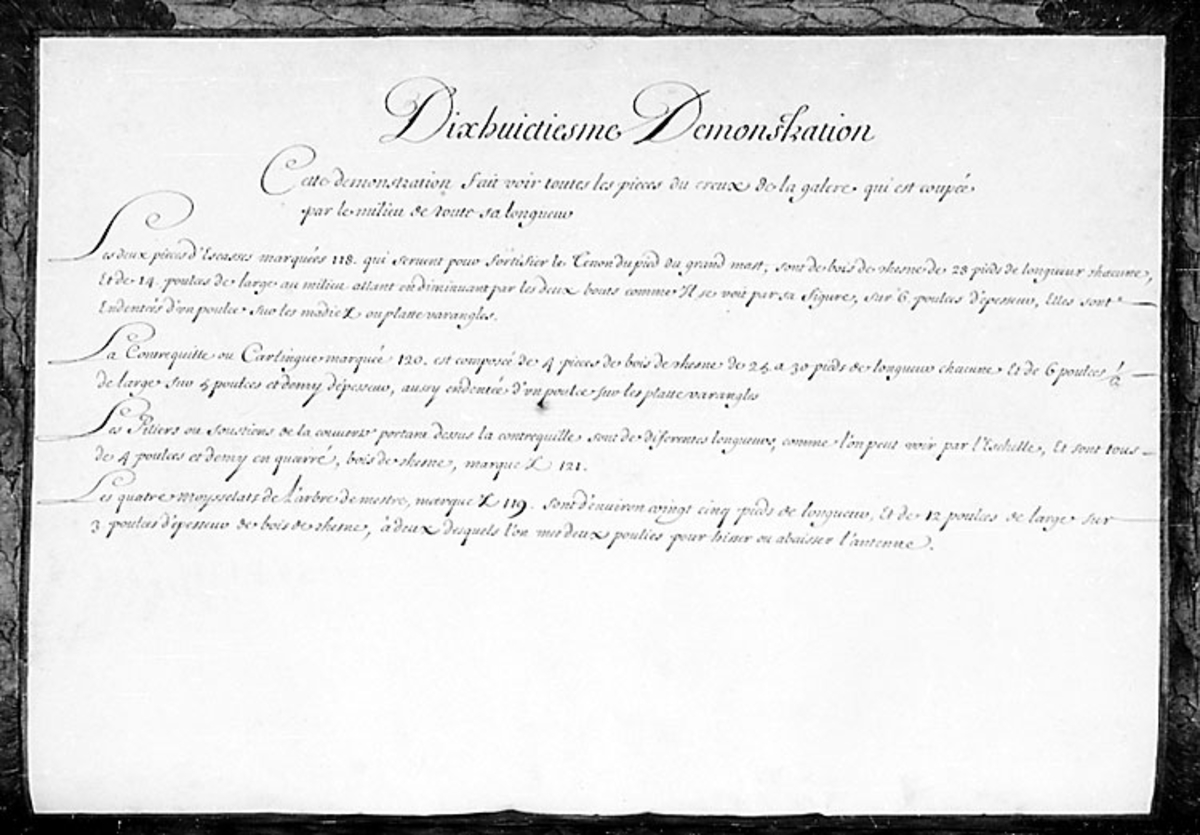 Dixhuictiesme Demonstration
Cette demonstration fait voir toutes les pieces du creux de la galere qui est coupée
par le milieu de toute sa longueur
Les deux pieces d'Escasses marquées 118. qui servent pour fortifier le Tenon du pied du grand mast, sont de bois de chesne de 28 pieds de longueur chacune,
Et de 14. poulces de large au milieu allant en diminuant par les deux bouts comme Il se voit par sa figure, sur 6 poulces d'epesseur, Elles sont
Endentées d'vn poulce sur les madiez ou platte varangles.
La Contrequille ou Carlingue marquée 120. est composée de 4 pieces de bois de chesne de 25 a 30 pieds de longueur chacune Et de 6 poulces ½
de large sur 5 poulces et demy d'epesseur, aussy endentée d'vn poulce sur les platte varangles
Les Piliers ou soustiens de la couverte portant dessus la contrequille sont de diferentes longueurs, comme l'on peut voir par l'Eschelle, Et sont tous
de 4 poulces et demy en quarré, bois de chesne, marquez 121.
Les quatre moysselats de l'arbre de mestre, marquez 119. sont d'environ vingt cinq pieds de longueur, Et de 12 poulces de large sur
3 poulces d'epesseur de bois de chesne, à deux desquels l'on met deux poulies pour hisser ou abaisser l'antenne.